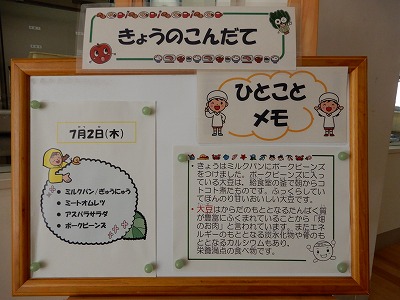 きょうのこんだて
ひとこと
メモ
7月2日(木)
● ミルクパン/ぎゅうにゅう
● ミートオムレツ
● アスパラサラダ
● ポークビーンズ
きょうはミルクパンにポークビーンズ
をつけました。ポークビーンズに入っ
ている大豆は、給食室の釜で朝からコ
トコト煮たものです。ふっくらしてい
てほんのり甘いおいしい大豆です。
大豆はからだのもととなるたんぱく質
が豊富にふくまれていることから「畑
のお肉」と言われています。またエネ
ルギーのもととなる炭水化物や骨のも
ととなるカルシウムもあり、
栄養満点の食べ物です。